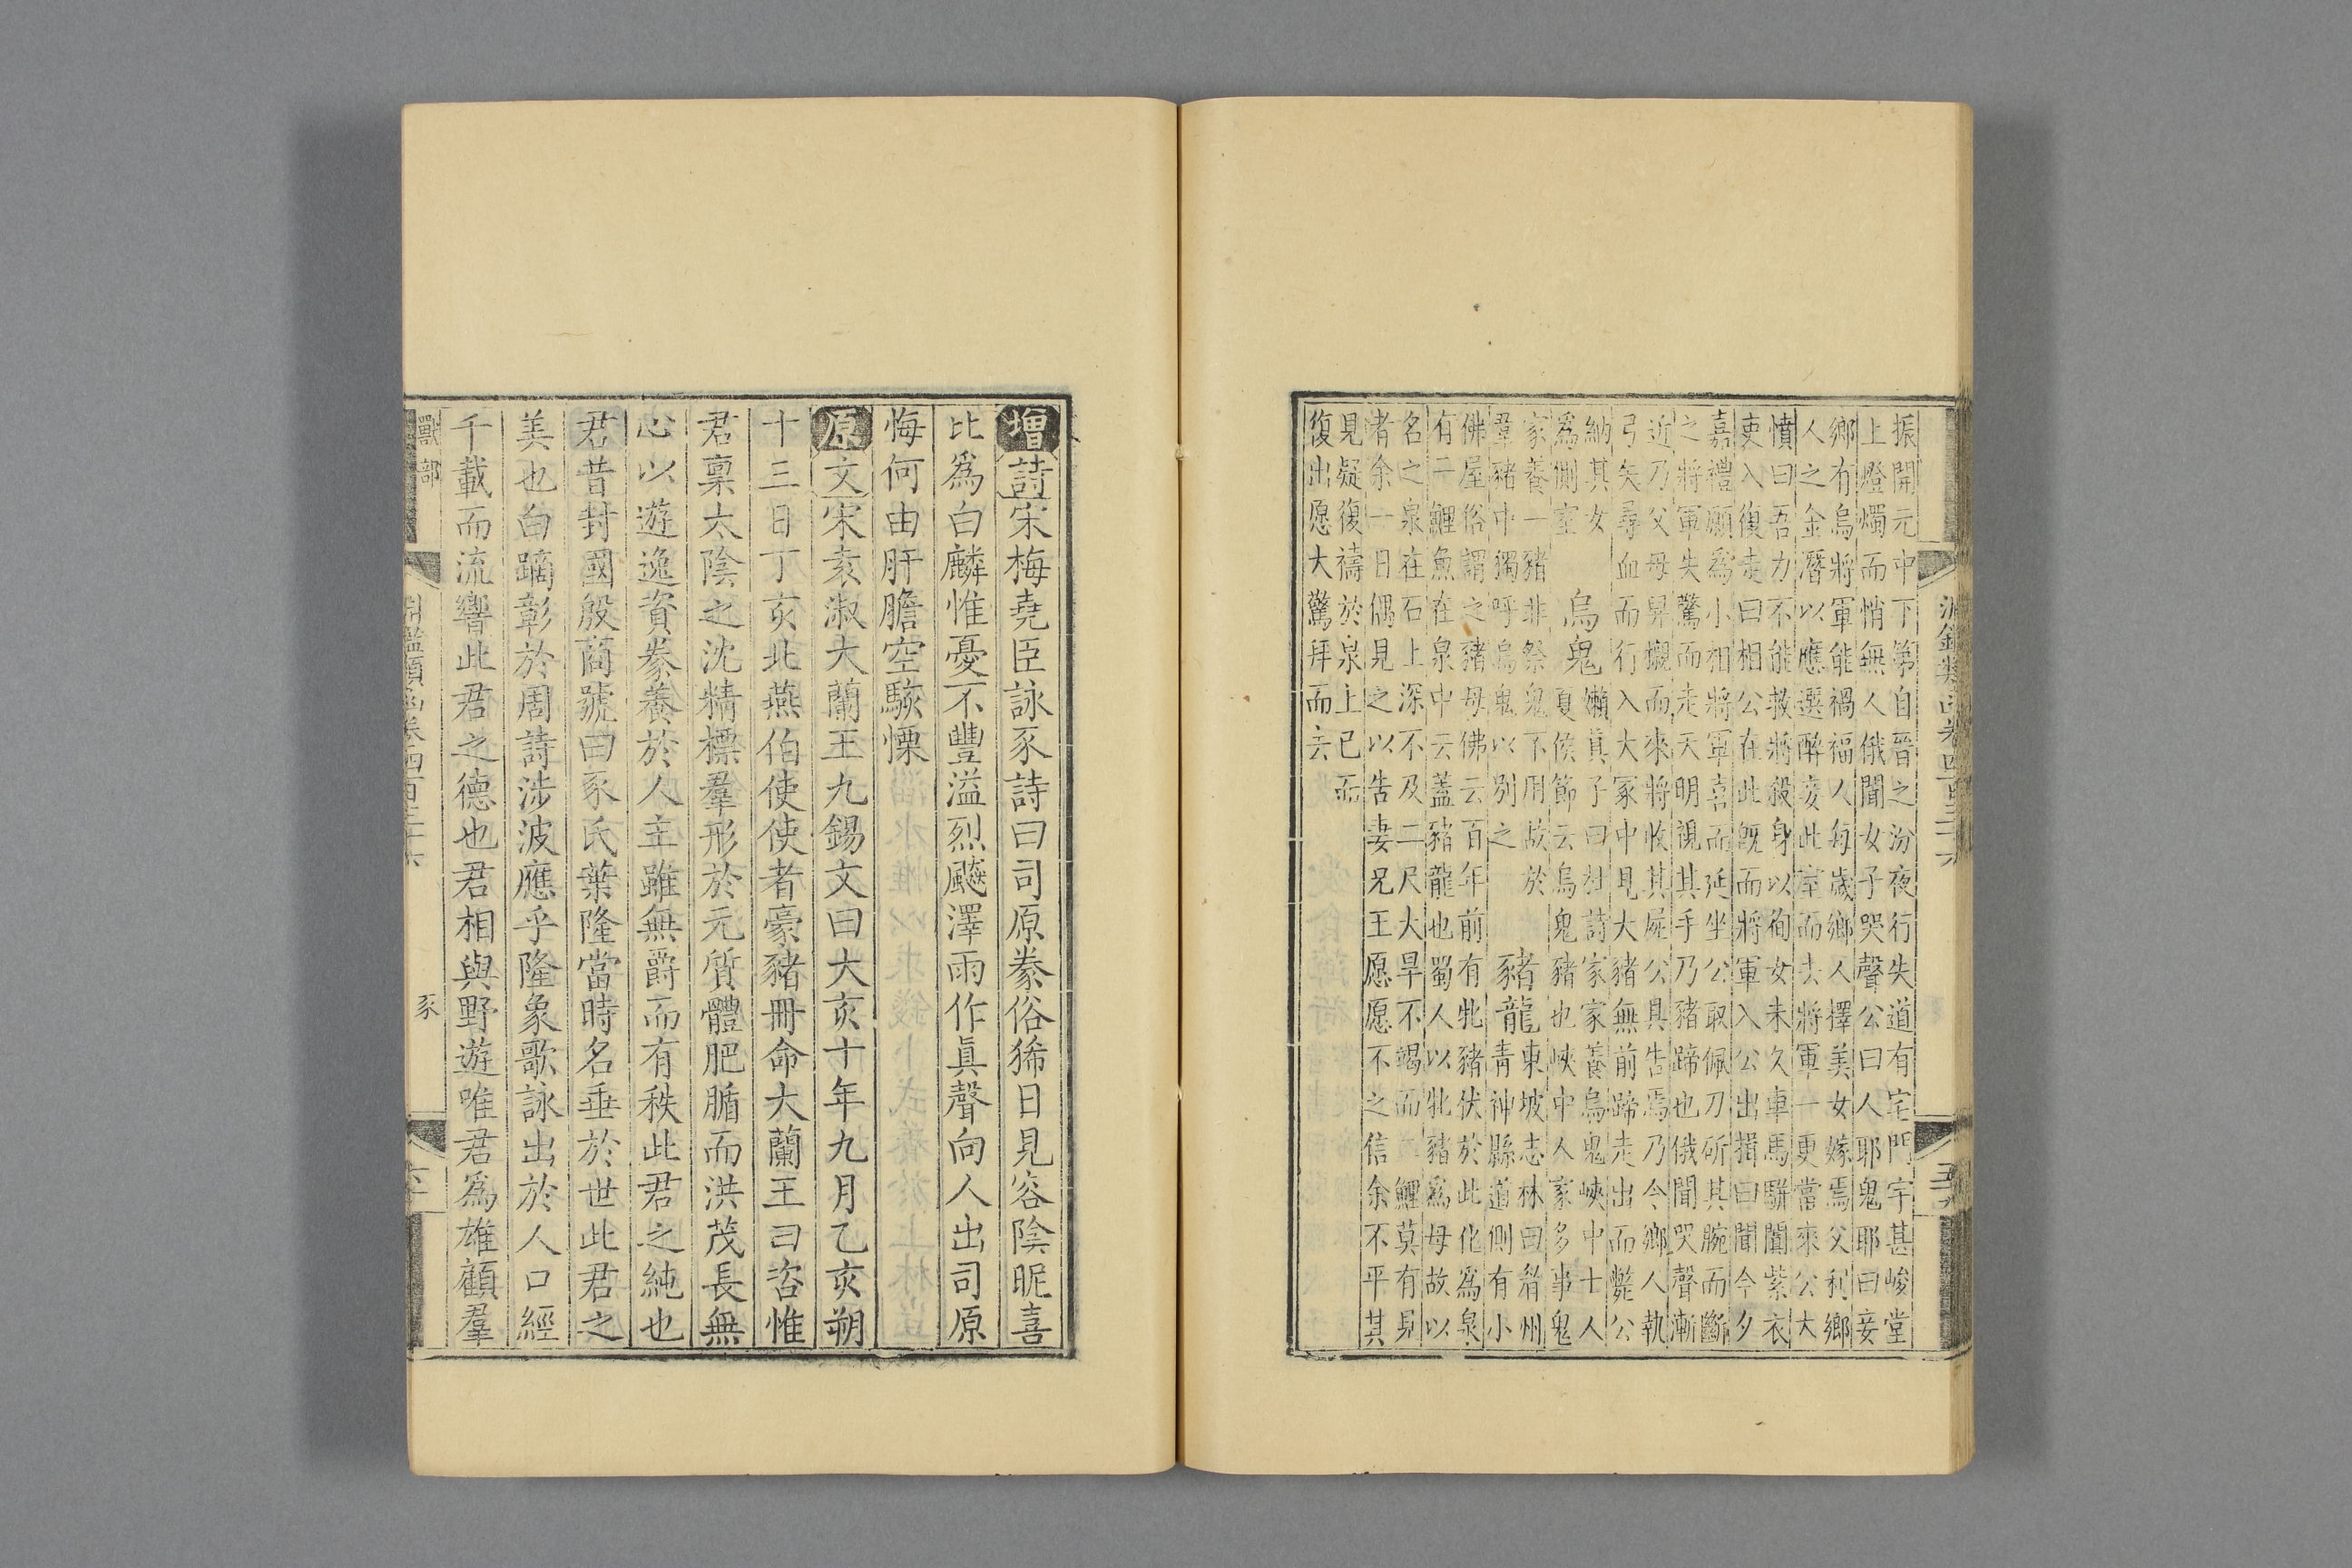 淵鑑類函卷四百三十六
振開元中下第自晉之汾夜行失道有宅門宇甚峻堂
上燈燭而悄無人俄聞女子哭聲公曰人耶鬼耶曰妾
鄉有烏將軍能禍福人每歲鄉人擇美女嫁焉父利鄉
人之金潛以應選醉妾此室而去將軍一更當來公大
憤曰吾力不能救將殺身以殉女未久車馬駢闐紫衣
吏入復走曰相公在此旣而將軍入公出揖曰聞今夕
嘉禮願爲小相將軍喜而延坐公取佩刀斫其腕而斷
之將軍失驚而走天明視其手乃豬蹄也俄聞哭聲漸
近乃父母舁櫬而來將收其屍公具告焉乃令鄉人執
弓矢尋血而行入大冢中見大豬無前蹄走出而斃公
納其女
爲側室
烏鬼
嬾真子曰杜詩家家養烏鬼峽中士人
夏侯節云烏鬼豬也峽中人家多事鬼
家養一豬非祭鬼不用故於
羣豬中獨呼烏鬼以別之
豬龍
東坡志林曰眉州
青神縣道側有小
佛屋俗謂之豬母佛云百年前有牝豬伏於此化爲泉
有二鯉魚在泉中云蓋豬龍也蜀人以牝豬爲母故以
名之泉在石上深不及二尺大旱不竭而二鯉莫有見
者余一日偶見之以告妻兄王愿愿不之信余不平其
見疑復禱於泉上已而
復出愿大驚拜而去
增詩宋梅堯臣詠豕詩曰司原豢俗豨日見容陰昵喜
比爲白麟惟憂不豐溢烈飈澤雨作眞聲向人出司原
悔何由肝膽空駭慄
原文宋袁淑大蘭王九錫文曰大亥十年九月乙亥朔
十三日丁亥北燕伯使使者豪豬冊命大蘭王曰咨惟
君稟太陰之沈精標羣形於元質體肥腯而洪茂長無
心以遊逸資豢養於人主雖無爵而有秩此君之純也
君昔封國殷商號曰豕氏葉隆當時名垂於世此君之
美也白蹢彰於周詩涉波應乎隆象歌詠出於人口經
千載而流響此君之德也君相與野遊唯君爲雄顧羣
獸部
淵鑑類函卷四百三十六
豕